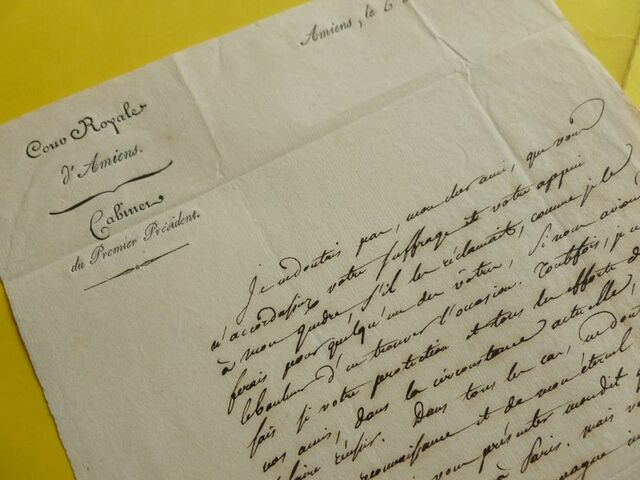 Amiens, le 6
Cour Royale
d'Amiens.
Cabinet
du Premier Président.
Je ne doutais pas, mon cher ami, que vous
n'accordassiez votre suffrage et votre appui
à mon gendre, s'il les réclamait, comme je le
ferais pour quelqu'un des vôtres, si nous avions
le bonheur d'en trouver l'occasion. Toutefois, je
fais si votre protection et tous les efforts de
vos amis, dans la circonstance actuelle,
faire réussir. Dans tous les cas, ne dout
reconnaissance et de mon éternel
vous présenter mondit
à Paris. mais